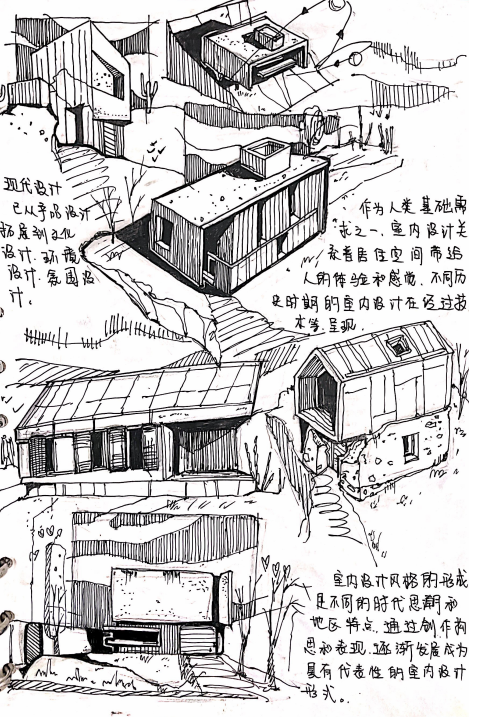 现代设计
已从产品设计
拓展到文化
设计、环境
设计、氛围设
计。
作为人类基础需
求之一，室内设计关
注着居住空间带给
人的体验和感觉，不同历
史时期的室内设计在经过技
术等呈现。
室内设计风格的形成
是不同的时代思潮和
地区特点，通过创作构
思和表现，逐渐发展成为
具有代表性的室内设计
形式。